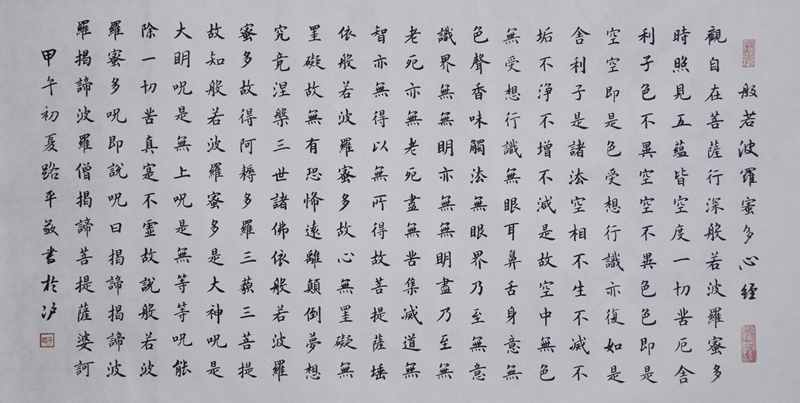 般若波羅蜜多心經
觀自在菩薩行深般若波羅蜜多
時照見五蘊皆空度一切苦厄舍
利子色不異空空不異色色即是
空空即是色受想行識亦復如是
舍利子是諸法空相不生不滅不
垢不淨不增不減是故空中無色
無受想行識無眼耳鼻舌身意無
色聲香味觸法無眼界乃至無意
識界無無明亦無無明盡乃至無
老死亦無老死盡無苦集滅道無
智亦無得以無所得故菩提薩埵
依般若波羅蜜多故心無罣礙無
罣礙故無有恐怖遠離顛倒夢想
究竟涅槃三世諸佛依般若波羅
蜜多故得阿耨多羅三藐三菩提
故知般若波羅蜜多是大神呪是
大明呪是無上呪是無等等呪能
除一切苦真寔不虛故說般若波
羅蜜多呪即說呪曰揭諦揭諦波
羅揭諦波羅僧揭諦菩提薩婆訶
甲午初夏路平敬書於沪